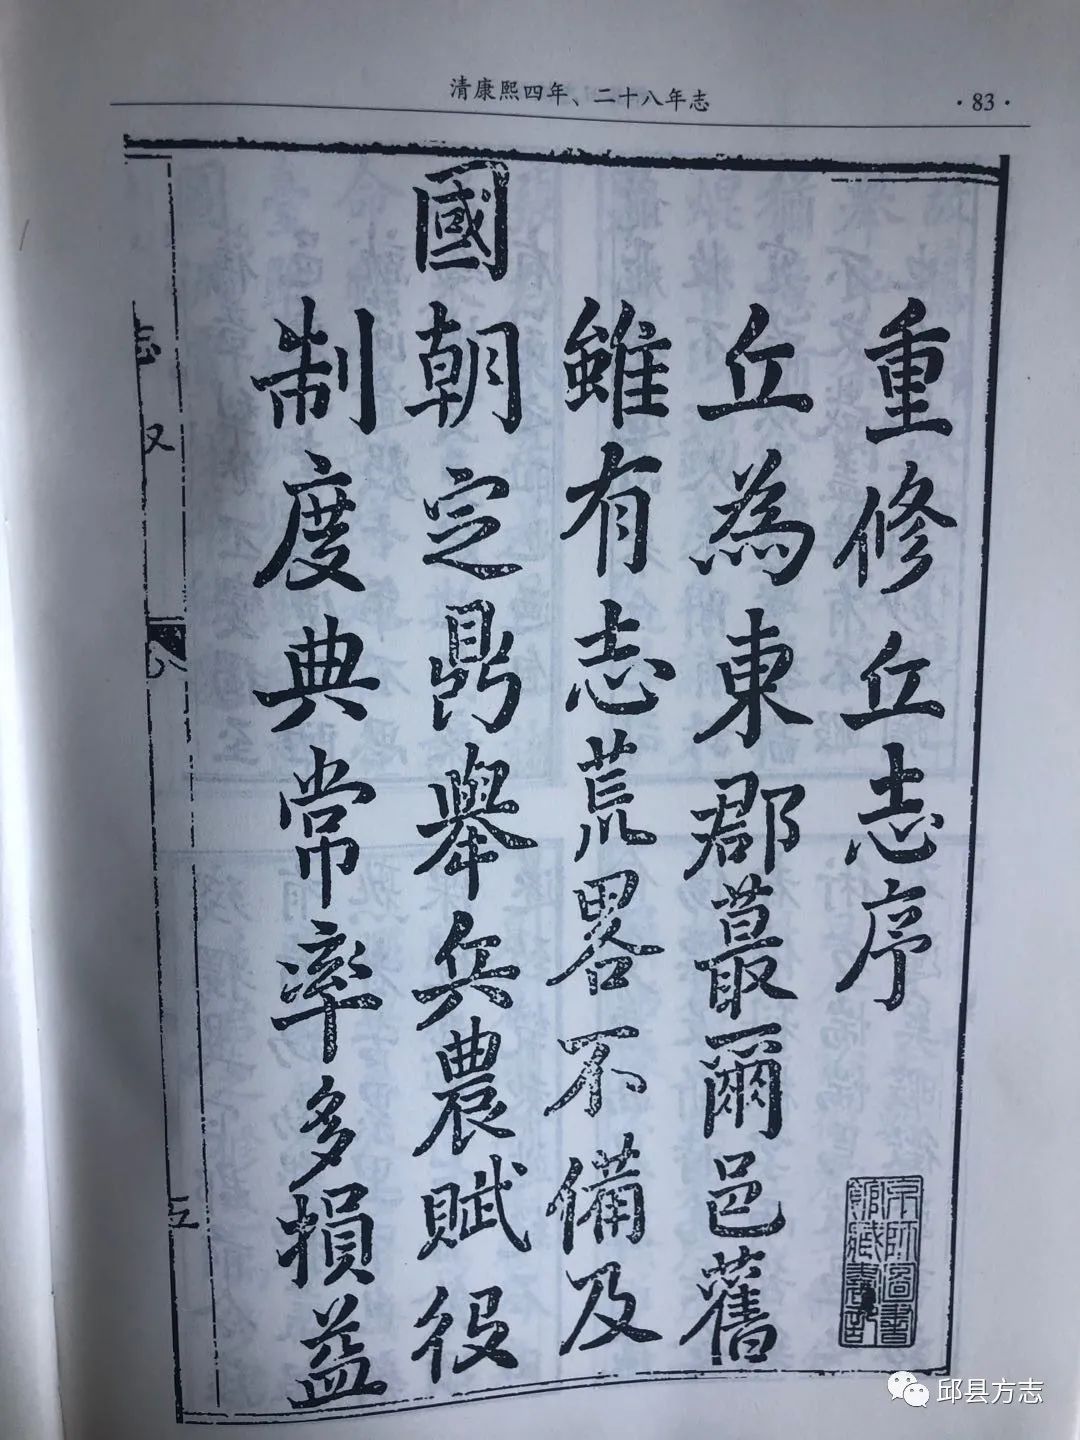 清康熙四年、二十八年志
·83·
重修丘志序
丘為東郡蕞爾邑舊
雖有志荒畧不備及
國朝定鼎舉兵農賦役
制度典常率多損益
京師圖書
館藏書記
志
邱县方志